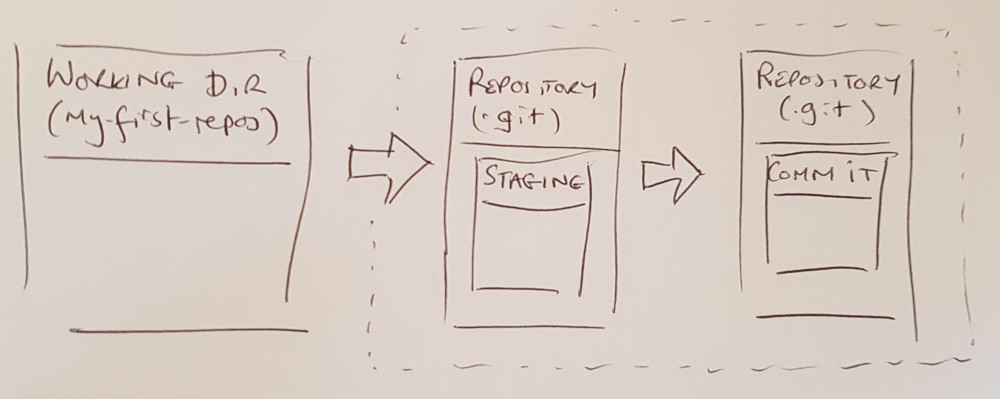 WORKING DIR
(My-first-repos)
REPOSITORY
(.git)
STAGING
REPOSITORY
(.git)
COMMIT